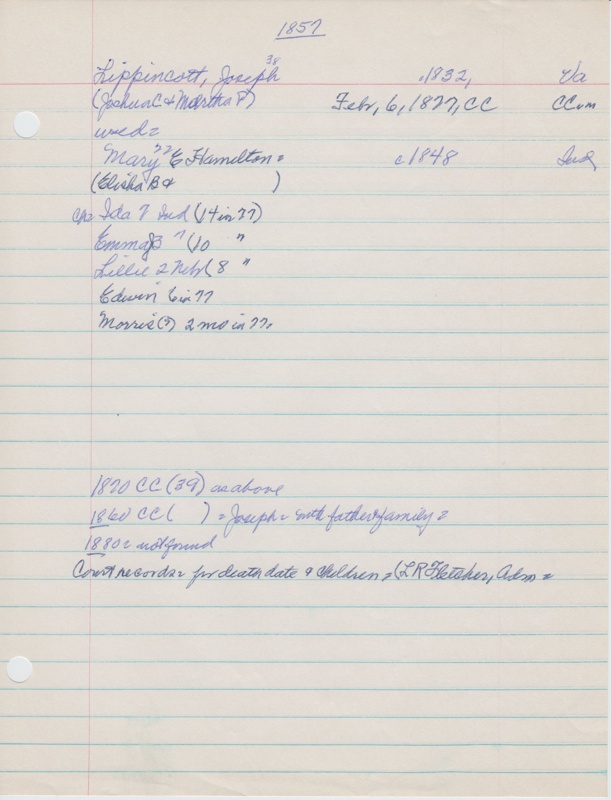 1857
Lippincott, Joseph 38 c1832, Va
(Joshua C & Martha P) Febr, 6, 1877, CC CCem
wed=
Mary 22 E Hamilton= c1848 Ind,
(Elisha B & )
Ida 7 Ind (14 in 77)
Emma B " (10 "
Lillie 2 Nebr (8 "
Edwin 6 in 77
Morris (?) 2 mo in 77,
1870 CC (39) as above
1860 CC ( ) = Joseph = with father & family =
1880 = not found
Court records = for death date & children = (L R Fletcher, Adm =